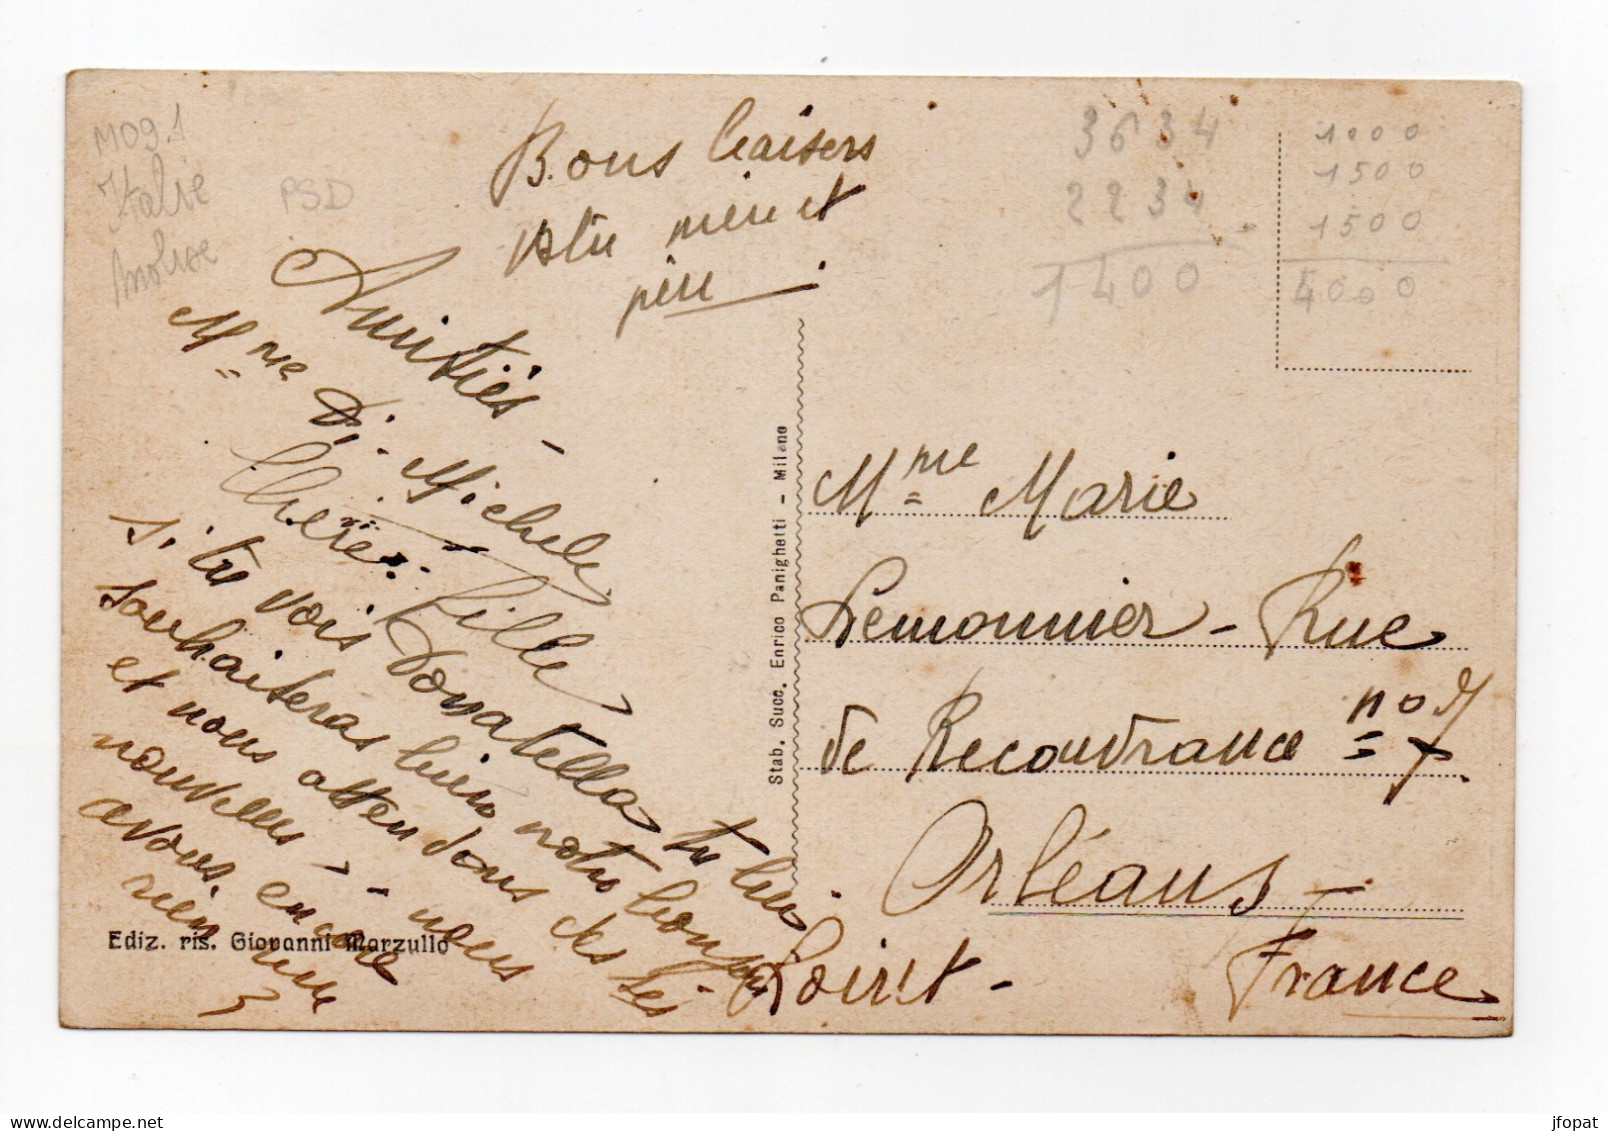 M09.1
Italie
Molise
PSD
Bons baisers
ta mère et
père
Amitiés -
Mme Di Michele
Chère Fille
si tu vois Donatella tu lui
souhaiteras bien notre bonjour
et nous attendons des
nouvelles - nous
avons encore
rien reçu
3634
2234
1400
1000
1500
1500
4000
Mme Marie
Lemonnier - Rue
de Recouvrance no 7
Orléans -
Loiret -
France
Stab. Succ. Enrico Panighetti - Milano
Ediz. ris. Giovanni Marzullo
jfopat
delcampe.net